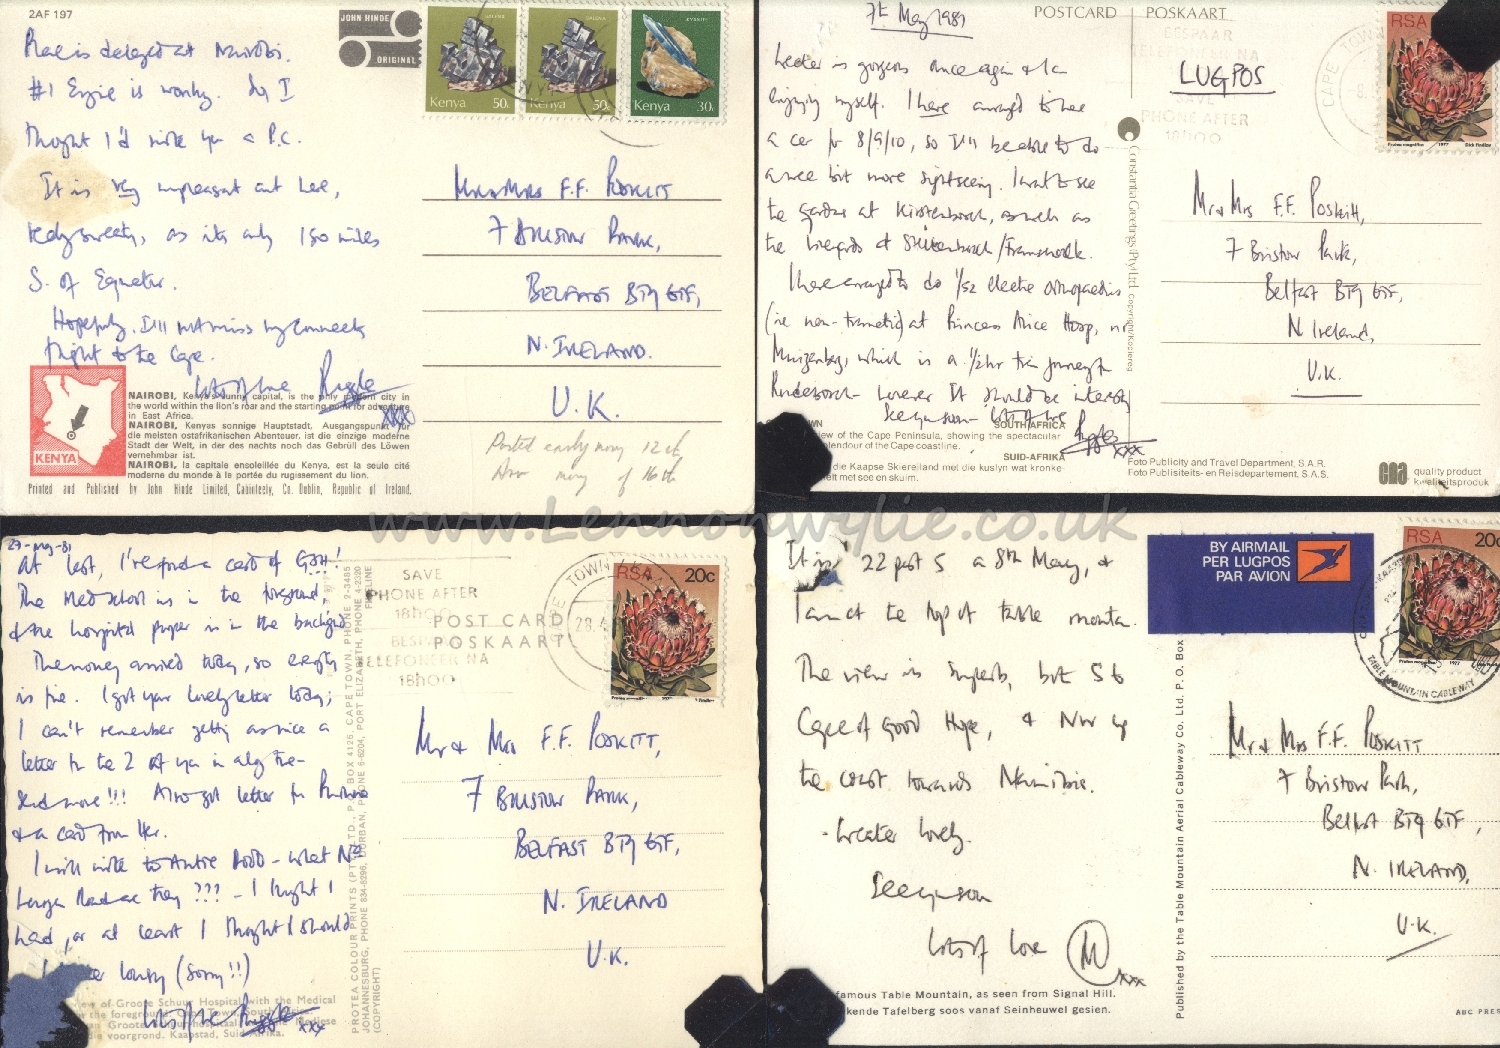 2AF 197
JOHN HINDE
ORIGINAL
Plane is delayed at Nairobi.
#1 Engine is wonky. So I
thought I'd write you a P.C.
It is very unpleasant out here,
really sweaty, as it's only 150 miles
S. of Equator.
Hopefully, I'll not miss my connecting
flight to the Cape.
Lots of love
xxx
GALENA
Kenya 50c
GALENA
Kenya 50c
KYANITE
Kenya 30c
Mr & Mrs F.F. POSKITT
7 BRISTOW PARK,
BELFAST BT9 6TF,
N. IRELAND.
U.K.
Posted early morning 12th
Arr morning of 16th
KENYA
NAIROBI, Kenya's sunny capital, is the only modern city in
the world within the lion's roar and the starting point for adventure
in East Africa.
NAIROBI, Kenyas sonnige Hauptstadt. Ausgangspunkt für
die meisten ostafrikanischen Abenteuer, ist die einzige moderne
Stadt der Welt, in der des nachts noch das Gebrüll des Löwen
vernehmbar ist.
NAIROBI, la capitale ensoleillée du Kenya, est la seule cité
moderne du monde à la portée du rugissement du lion.
Printed and Published by John Hinde Limited, Cabinteely, Co. Dublin, Republic of Ireland.
7th May 1981
POSTCARD POSKAART
LUGPOS
BESPAAR
TELEFONEER NA
SAVE
PHONE AFTER
18h00
CAPE TOWN
RSA
Protea magnifica 1977 Dick Findlay
Weather is gorgeous once again & I am
enjoying myself. I have arranged to hire
a car for 8/9/10, so I'll be able to do
a wee bit more sightseeing. I want to see
the gardens at Kirstenbosch, as well as
the vineyards at Stellenbosch/Franschhoek.
I have arranged to do 1/52 elective orthopaedics
(ie non-traumatic) at Princess Alice Hosp, nr
Muizenberg, which is a 1/2 hr train journey from
Rondebosch. However it should be interesting
See you soon Lots of love
xxx
Mr & Mrs F.F. Poskitt,
7 Bristow Park,
Belfast BT9 6TF,
N Ireland,
U.K.
Constantia Greetings (Pty) Ltd. Copyright/Kopiereg
SOUTH AFRICA
view of the Cape Peninsula, showing the spectacular
splendour of the Cape coastline.
SUID-AFRIKA
die Kaapse Skiereiland met die kuslyn wat kronkelend
met see en skuim.
Foto Publicity and Travel Department, S.A.R.
Foto Publisiteits- en Reisdepartement, S.A.S.
ena quality product
kwaliteitsproduk
www.Lennonwylie.co.uk
27-May-81
At last, I've found a card of GSH!
The Med school is in the foreground,
& the hospital proper is in the background
The money arrived today, so everything
is fine. I got your lovely letter today;
I can't remember getting as nice a
letter from the 2 of you in a long time-
send more!!! Also got letter from
& a card from Her.
I will write to Auntie - what No
Langer Road are they ??? - I thought I
had, or at least I thought I should
(sorry!!)
Lots of love
xxx
SAVE
PHONE AFTER
18h00
BESPAAR
TELEFONEER NA
18h00
POST CARD
POSKAART
CAPE TOWN
RSA 20c
Protea magnifica 1977
Mr & Mrs F.F. POSKITT,
7 BRISTOW PARK,
BELFAST BT9 6TF,
N. IRELAND
U.K.
PROTEA COLOUR PRINTS (PTY) LTD., P.O. BOX 4126, CAPE TOWN, PHONE 2-3485
JOHANNESBURG, PHONE 834-8296, DURBAN, PHONE PORT ELIZABETH, PHONE 4-2320
(COPYRIGHT)
view of Groote Schuur Hospital with the Medical
the foreground. Cape Town, South Africa.
van Groote Schuur-hospitaal die Mediese
die voorgrond. Kaapstad, Suid-Afrika.
It is 22 past 5 on 8th May, &
I am at the top of table mountain.
The view is superb, both S to
Cape of Good Hope, & NW up
the coast towards Namibia.
Weather lovely.
See you soon
Lots of Love M
xxx
BY AIRMAIL
PER LUGPOS
PAR AVION
RSA 20c
Protea magnifica 1977
TABLE MOUNTAIN CABLEWAY
Mr & Mrs F.F. POSKITT
7 Bristow Park,
Belfast BT9 6TF,
N. IRELAND,
U.K.
Published by the Table Mountain Aerial Cableway Co. Ltd. P.O. Box
famous Table Mountain, as seen from Signal Hill.
kende Tafelberg soos vanaf Seinheuwel gesien.
ABC PRESS